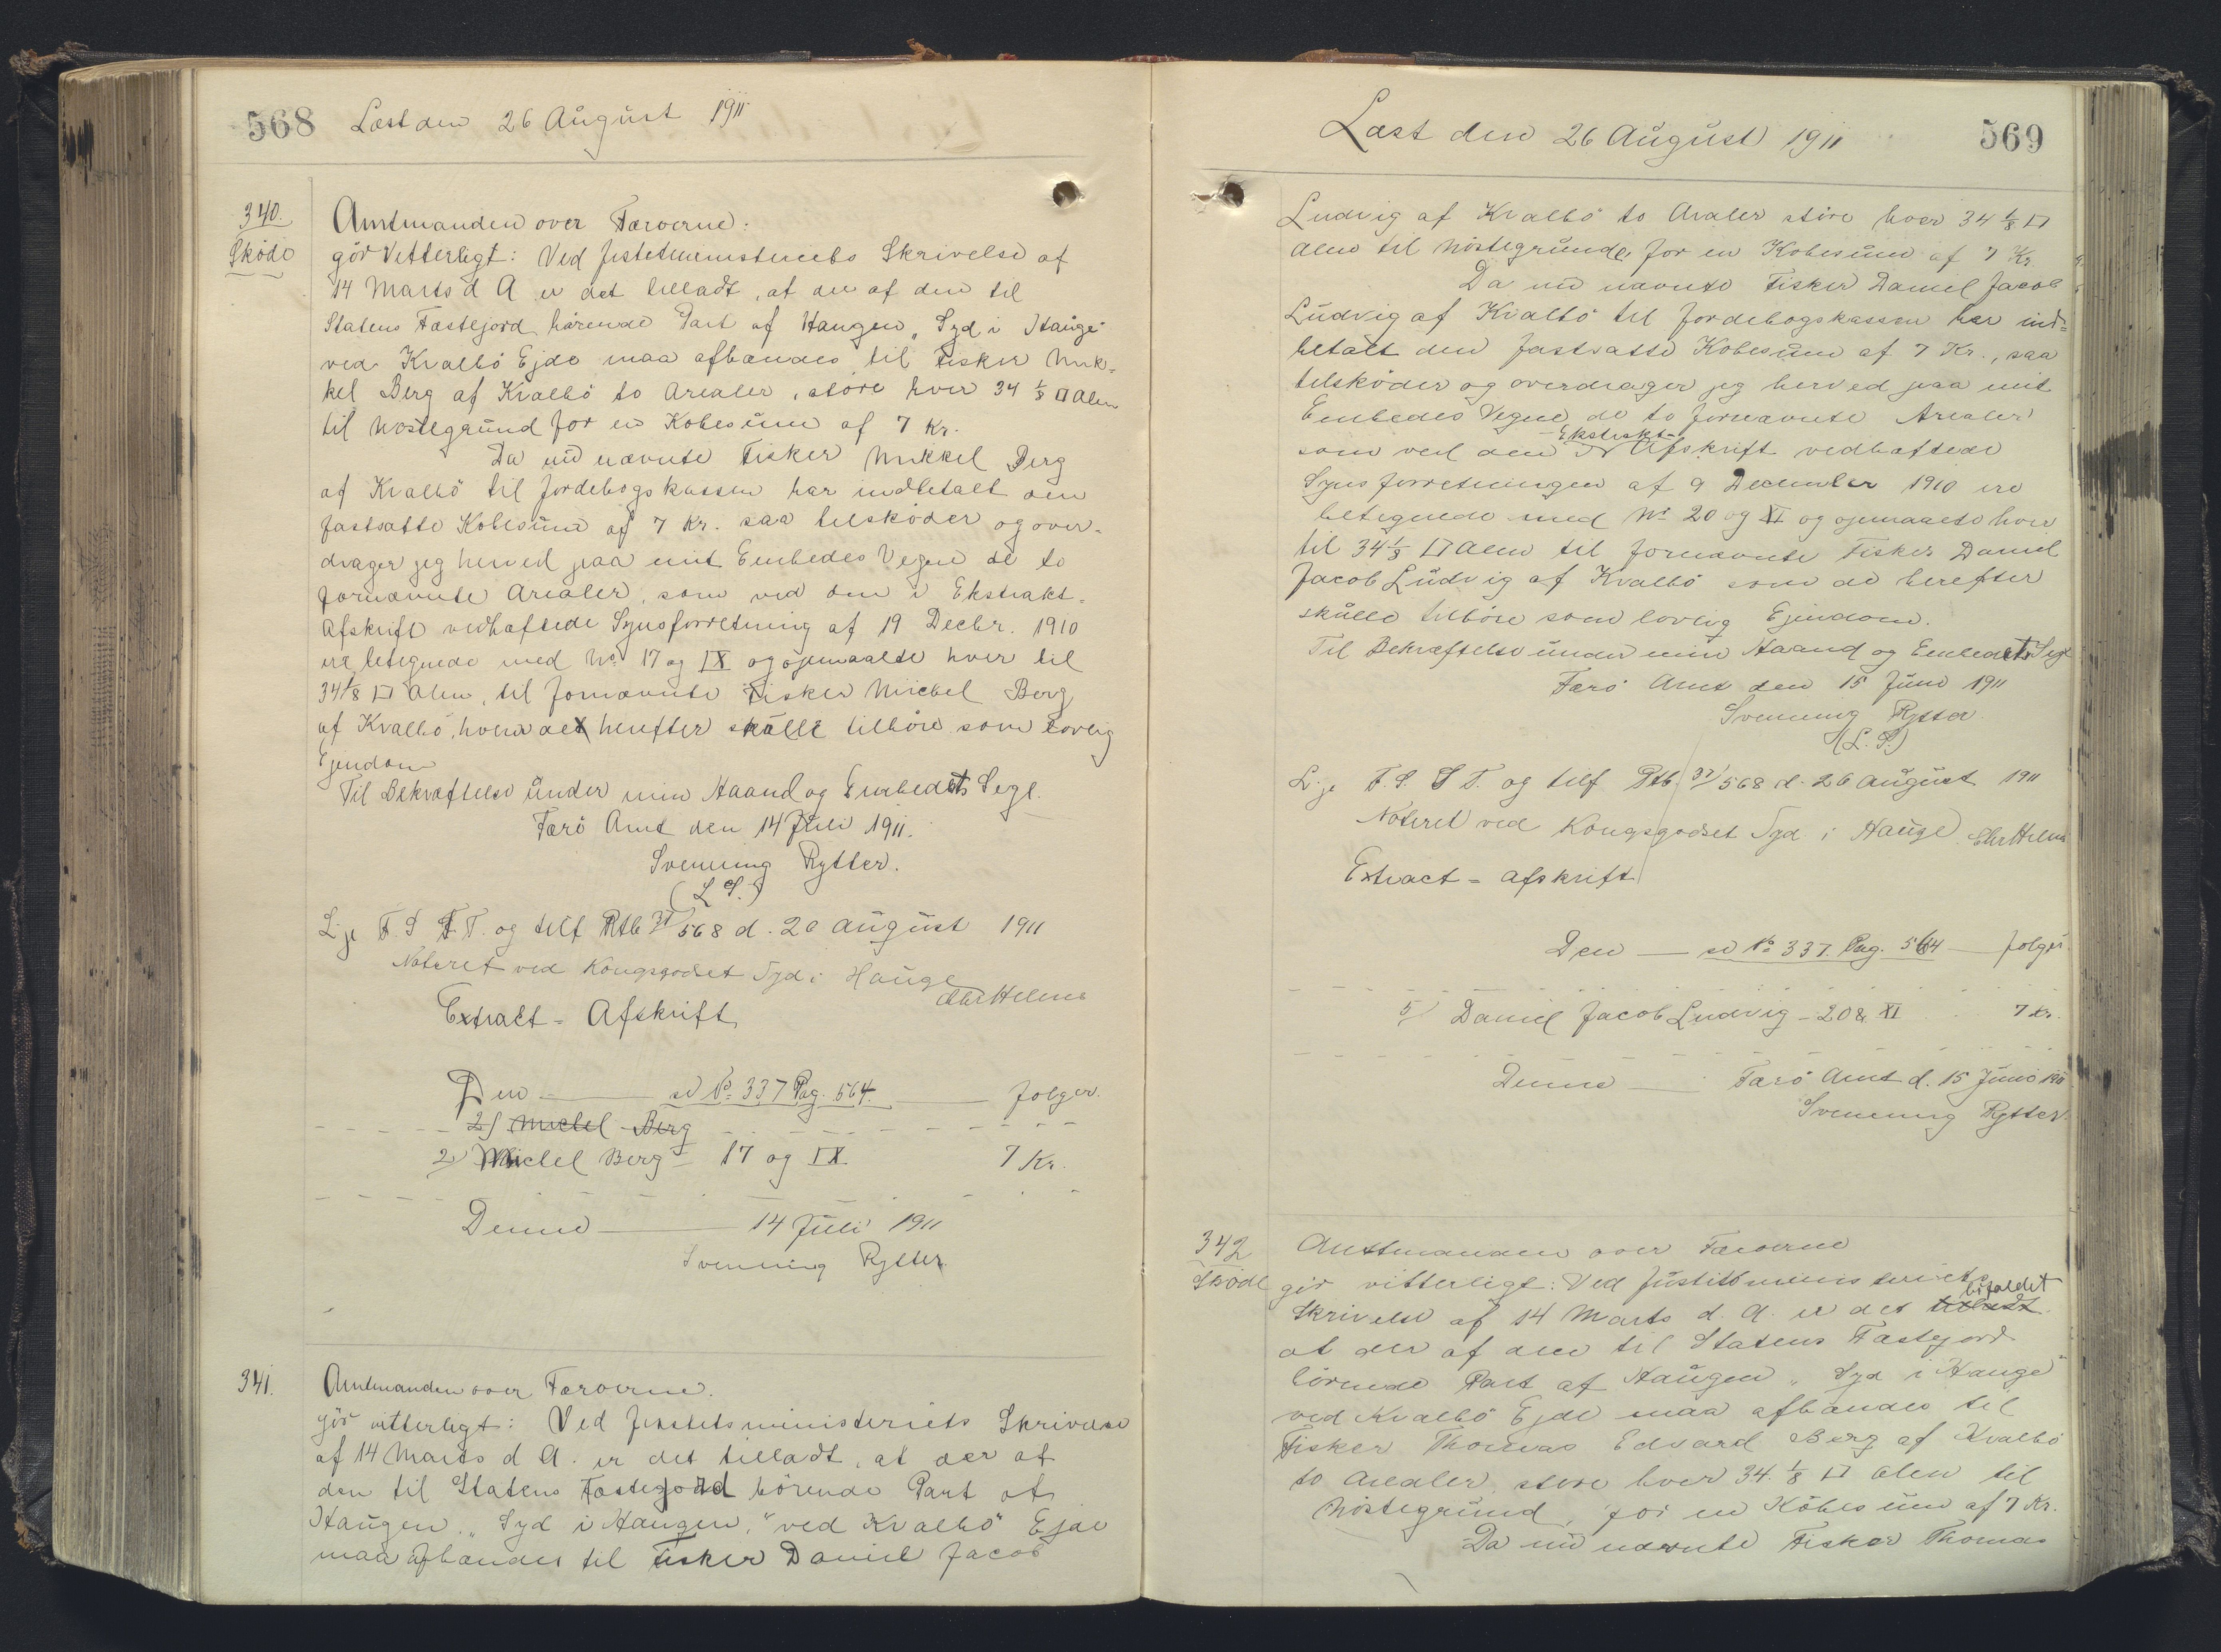 568 Læst den 26 August 1911
340. Amtmanden over Færøerne:
Skøde gör Vitterligt: Ved Justitsministeriets Skrivelse af
14 Marts d A er det tilladt, at der af den til
Statens Fæstejord hørende Part af Haugen „Syd i Hauge"
ved Kvalbö Ejde maa afhændes til Fisker Mik=
kel Berg af Kvalbö to Arealer, störe hver 34 1/8 □ Alen
til Nöstegrund for en Købesum af 7 Kr.
Da nu nævnte Fisker Mikkel Berg
af Kvalbö til Jordebogskassen har indbetalt den
fastsatte Købesum af 7 Kr. saa tilsköder og over-
drager jeg herved paa mit Embedes Vegne de to
fornævnte Arealer, som ved den i Ekstrakt=
Afskrift vedhæftede Synsforretning af 19 Decbr. 1910
ere betegnede med No 17 og IX og opmaalte hver til
34 1/8 □ Alen, til fornævnte Fisker Michel Berg
af Kvalbö, hvem de herefter skulle tilhöre som lovlig
Ejendom
Til Bekræftelse under min Haand og Embedets Segl.
Færö Amt den 14 Juli 1911.
Svenning Rytter.
(L. S.)
L. j. F. S. S. T. og tilf Ptb 37/568 d. 26 August 1911
Noteret ved Kongsgodset Syd i Hauge
Extract - Afskrift
Den — se No 337 Pag. 564. — følger.
2) Michel Berg
2) Michel Berg - 17 og IX 7 Kr.
Denne — 14 Juli 1911
Svenning Rytter
341. Amtmanden over Færøerne.
gör vitterligt: Ved Justitsministeriets Skrivelse
af 14 Marts d A. er det tilladt, at der af
den til Statens Fæstejord hörende Part af
Haugen. „Syd i Haugen," ved Kvalbö Ejde
maa afhændes til Fisker Daniel Jacob
Læst den 26 August 1911 569
Ludvig af Kvalbö to Arealer störe hver 34 1/8 □
Alen til Nöstegrunde for en Købesum af 7 Kr.
Da nu nævnte Fisker Daniel Jacob
Ludvig af Kvalbö til Jordebogskassen har ind=
betalt den fastsatte Købesum af 7 Kr., saa
tilsköder og overdrager jeg herved paa mit
Embedes Vegne de to fornævnte Arealer
som ved den i Ekstrakt- Afskrift vedhæftede
Synsforretningen af 9 December 1910 ere
betegnede med No 20 og XI og opmaalte hver
til 34 1/8 □ Alen til fornævnte Fisker Daniel
Jacob Ludvig af Kvalbö som de herefter
skulle tilhöre som lovlig Ejendom.
Til Bekræftelse under min Haand og Embedets Segl
Færö Amt den 15 Juni 1911
Svenning Rytter
(L. S.)
L. j. F. S. S T. og tilf Ptb 37/568 d. 26 August 1911
Noteret ved Kongsgodset Syd i Hauge
Extract - Afskrift
Den — se No 337. Pag. 564 — følger
5) Daniel Jacob Ludvig - 20 & XI 7 Kr.
Denne — Færö Amt d. 15 Juni 1911
Svenning Rytter.
342 Amtmanden over Færøerne
Skøde gör vitterligt: Ved Justitsministeriets
Skrivelse af 14 Marts d. A. er det tilladt bifaldet
at der af den til Statens Fæstejord
hörende Part af Haugen „Syd i Hauge"
ved Kvalbö Ejde maa afhændes til
Fisker Thomas Edvard Berg af Kvalbö
to Arealer store hver 34. 1/8 □ Alen til
Nöstegrund, for en Köbesum af 7 Kr.
Da nu nævnte Fisker Thomas